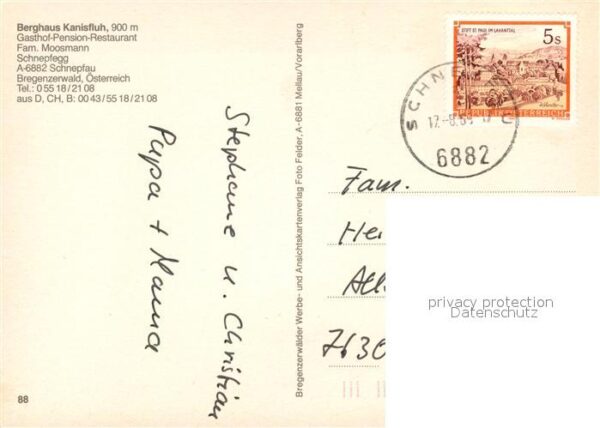 Berghaus Kanisfluh, 900 m
Gasthof-Pension-Restaurant
Fam. Moosmann
Schnepfegg
A-6882 Schnepfau
Bregenzerwald, Österreich
Tel.: 0 55 18 / 21 08
aus D, CH, B: 00 43 / 55 18 / 21 08
Stephanie u. Christian
Papa + Mama
88
Bregenzerwälder Werbe- und Ansichtskartenverlag Foto Felder, A-6881 Mellau/Vorarlberg
STIFT ST. PAUL IM LAVANTTAL
5s
REPUBLIK ÖSTERREICH
6882
Fam.
He
All
7630
privacy protection
Datenschutz